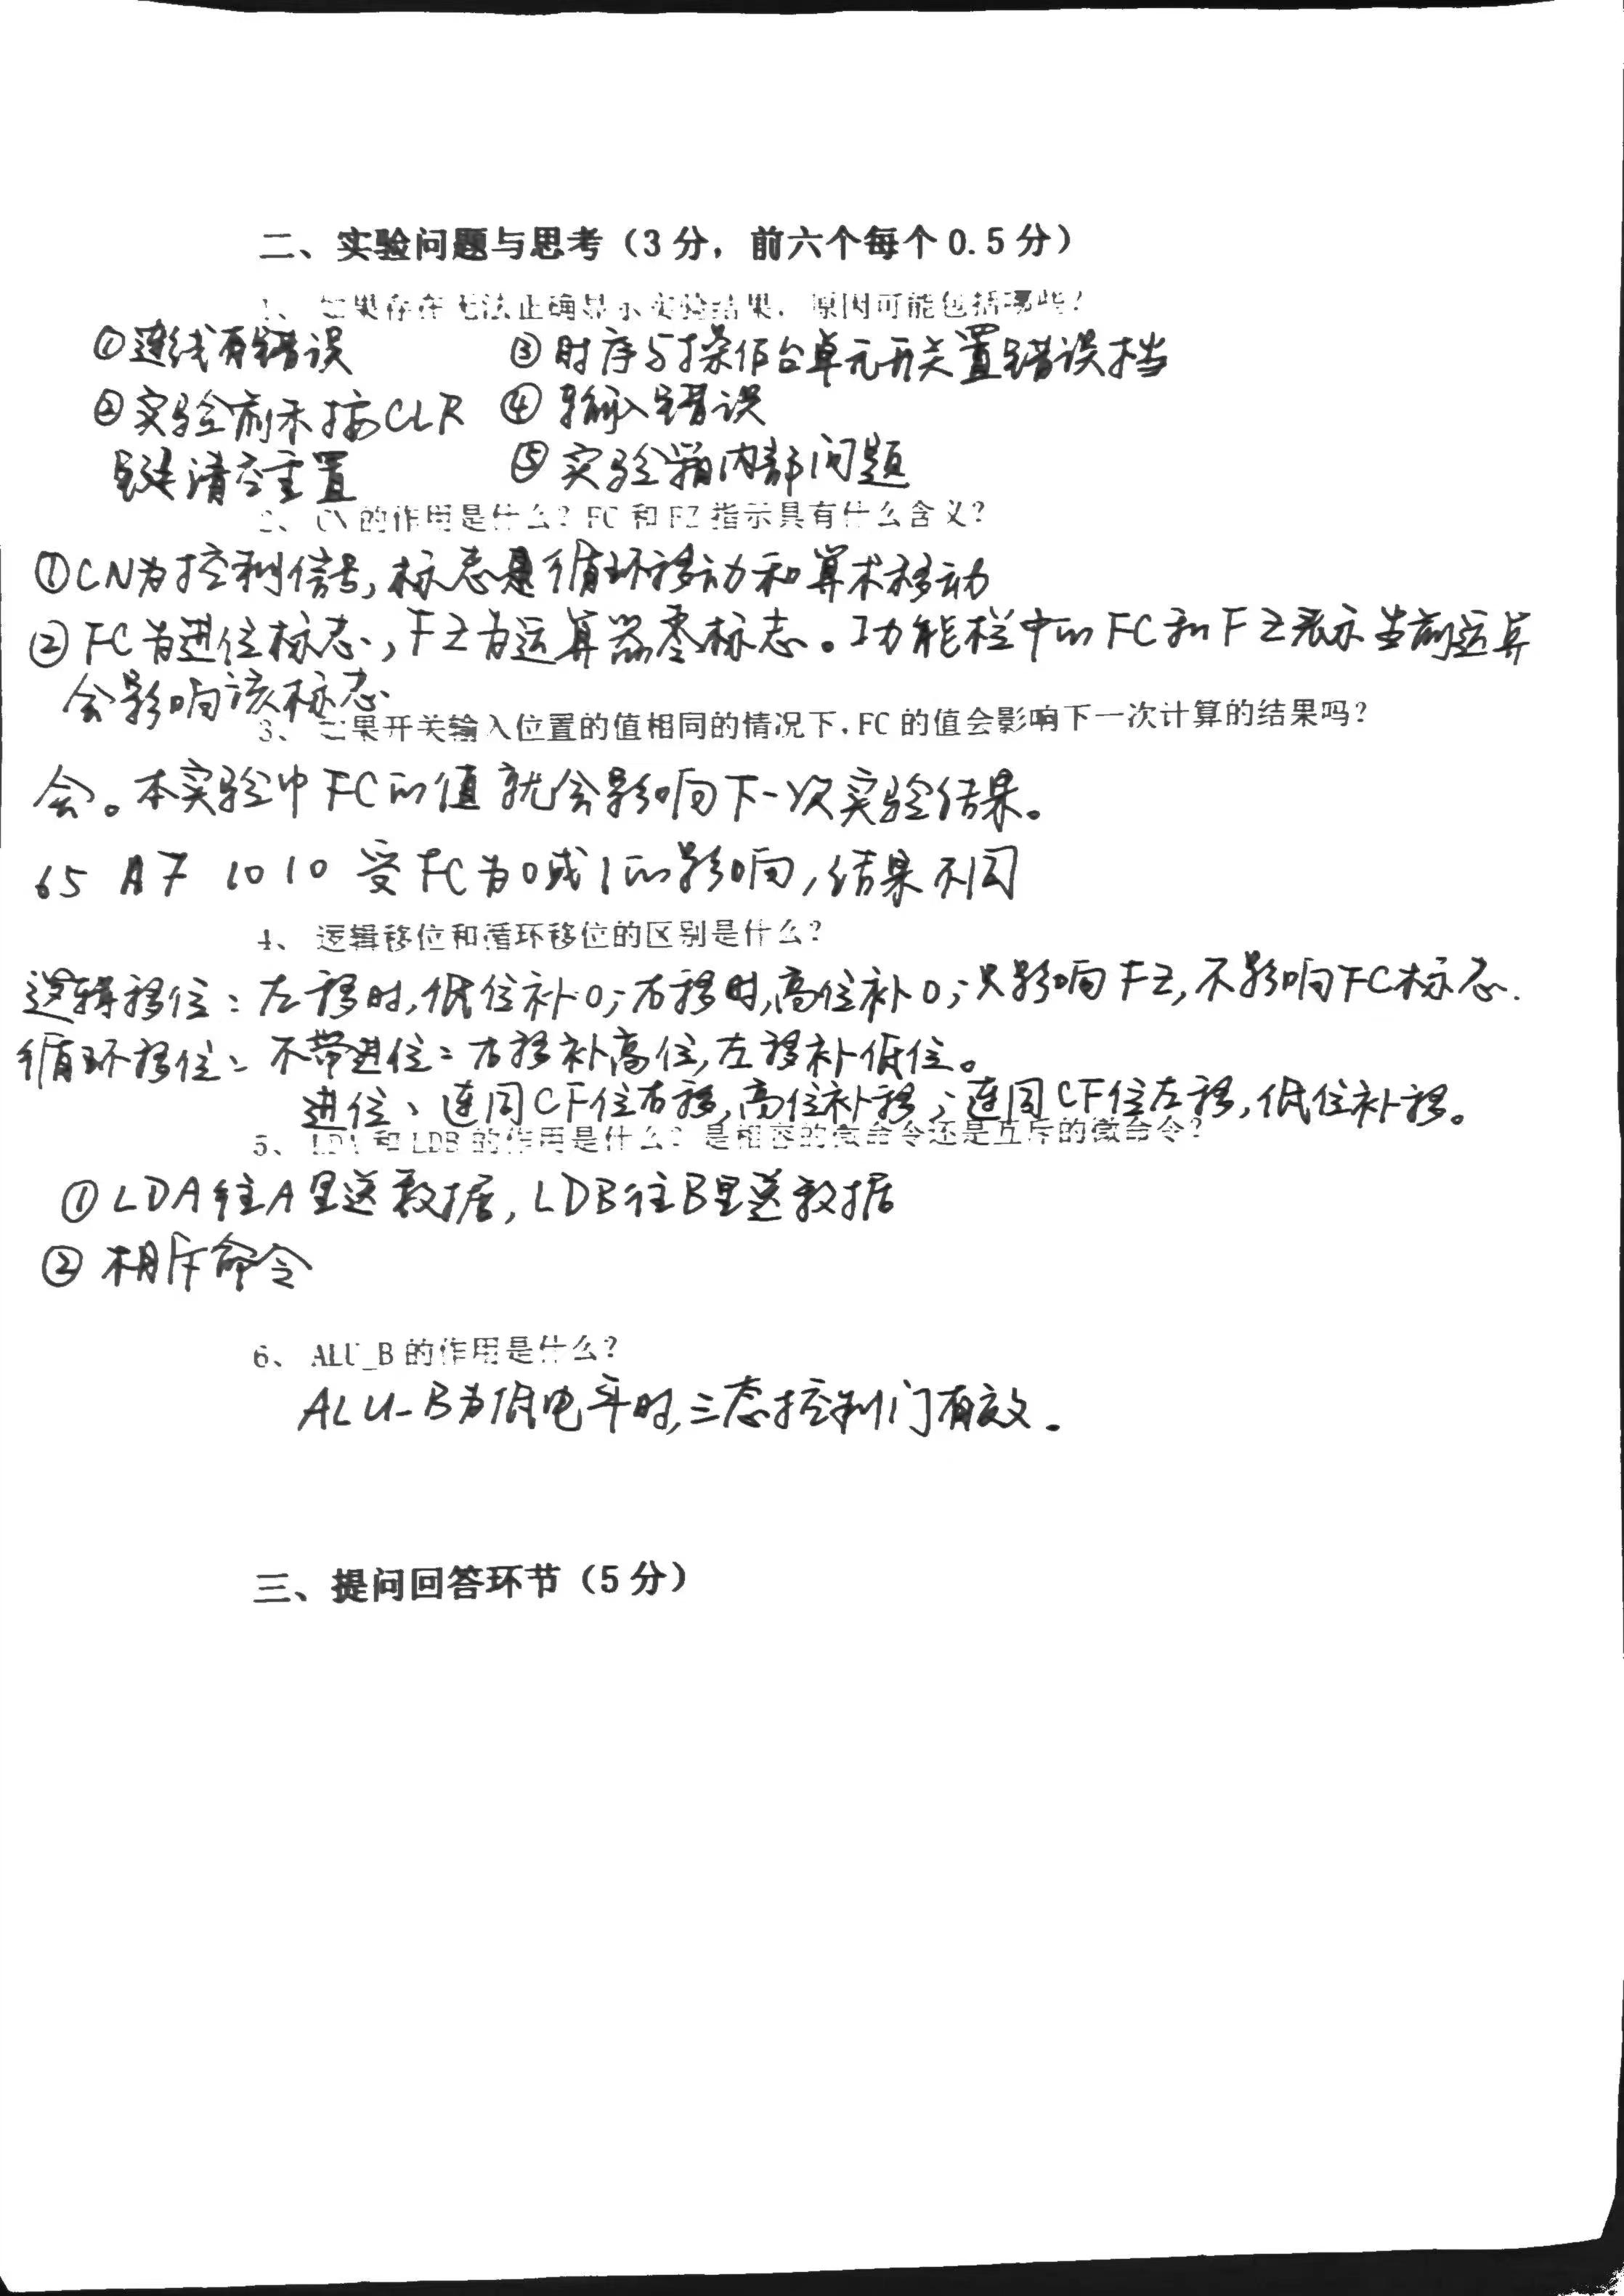 二、实验问题与思考（3分，前六个每个0.5分）
1、如果存在无法正确显示实验结果，原因可能包括哪些？
①连线有错误
③时序与操作台单元开关置错误档
②实验前未按CLR
④输入错误
键清空重置
⑤实验箱内部问题
2、CN的作用是什么？FC和FZ指示具有什么含义？
①CN为控制信号,标志是循环移动和算术移动
②FC为进位标志,FZ为运算器零标志。功能栏中的FC和FZ表示当前运算
会影响该标志
3、如果开关输入位置的值相同的情况下,FC的值会影响下一次计算的结果吗？
会。本实验中FC的值就会影响向下一次实验结果。
65 A7 1010 受FC为0或1的影响,结果不同
4、逻辑移位和循环移位的区别是什么？
逻辑移位:左移时,低位补0;右移时,高位补0;只影响FZ,不影响FC标志.
循环移位:不带进位:右移补高位,左移补低位。
进位、连同CF位右移,高位补移;连同CF位左移,低位补移。
5、LDA和LDB的作用是什么？是相容的微命令还是互斥的微命令？
①LDA往A里送数据,LDB往B里送数据
②相斥命令
6、ALU_B的作用是什么？
ALU-B为低电平时,三态控制门有效.
三、提问回答环节（5分）